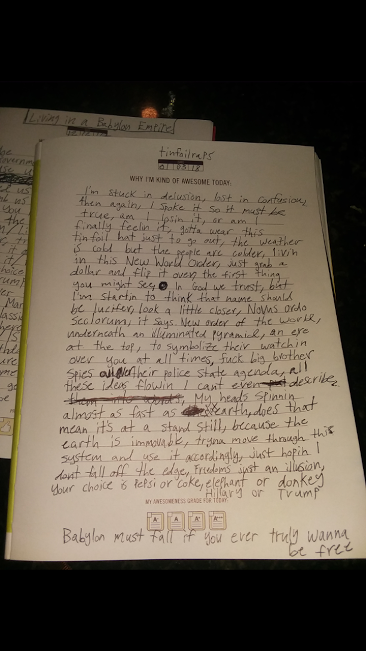 Living in a Babylon Empire
tinfoilraps
WHY I'M KIND OF AWESOME TODAY:
I'm stuck in delusion, lost in confusion,
then again, I spoke it so it must be
true, am I losin it, or am I
finally feelin it, gotta wear this
tinfoil hat just to go out, the weather
is cold but the people are colder, livin
in this New World Order, just grab a
dollar and flip it over, the first thing
you might see, In God we trust, but
I'm startin to think that name should
be lucifer, look a little closer, Novus Ordo
Seclorum, it says, New order of the world,
underneath an illuminated pyramid, an eye
at the top, to symbolize their watchin
over you at all times, fuck big brother
spies and their police state agenda, all
these ideas flowin I cant even describe,
them into words, My heads spinnin
almost as fast as earth, does that
mean it's at a stand still, because the
earth is immovable, tryna move through this
system and use it accordingly, just hopin I
dont fall off the edge, freedoms just an illusion,
your choice is Pepsi or Coke, elephant or donkey
Hillary or Trump
MY AWESOMENESS GRADE FOR TODAY:
Babylon must fall if you ever truly wanna
be free